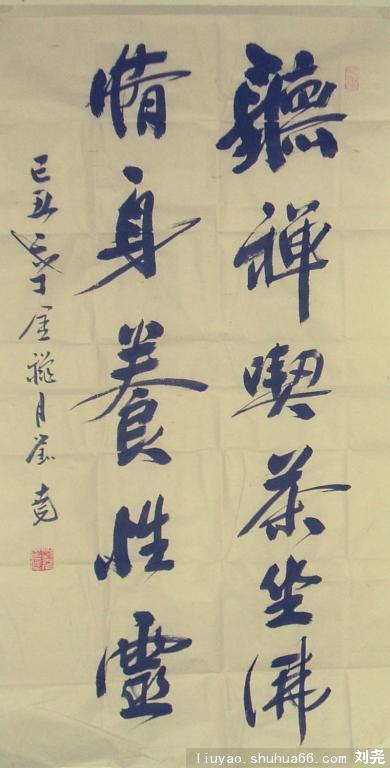 聽禪喫茶坐佛
脩身養性靈
己丑
金禪月劉堯
liuyao.shuhua66.com 刘尧